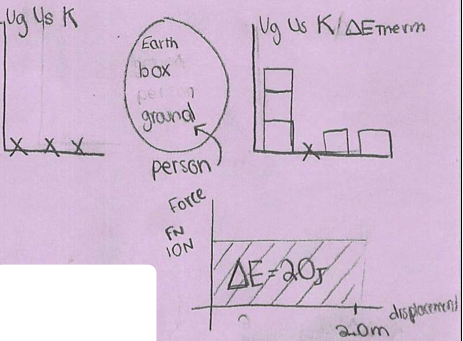 Ug Us K
Earth
box
person
ground
person
Ug Us K/ΔETherm
Force
FN
10N
ΔE=20J
displacement
2.0m